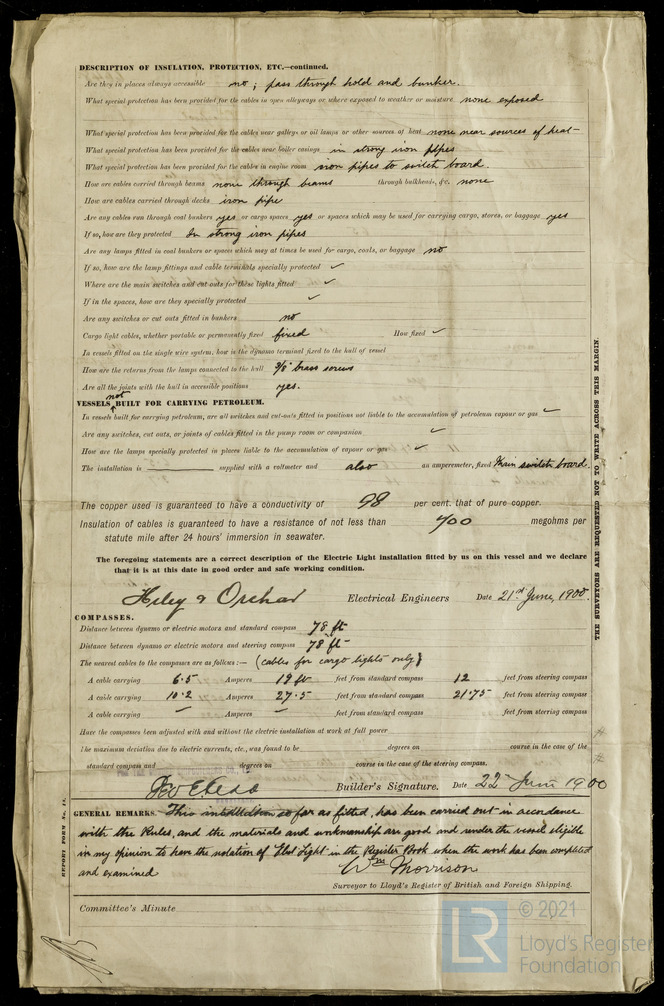 DESCRIPTION OF INSULATION, PROTECTION, ETC.—continued.
Are they in places always accessible no; pass through hold and bunker.
What special protection has been provided for the cables in open alleyways or where exposed to weather or moisture none exposed
What special protection has been provided for the cables near galleys or oil lamps or other sources of heat none near sources of heat
What special protection has been provided for the cables near boiler casings in strong iron pipes
What special protection has been provided for the cables in engine room iron pipes to switch board.
How are cables carried through beams none through beams through bulkheads, &c. none
How are cables carried through decks iron pipe
Are any cables run through coal bunkers yes or cargo spaces yes or spaces which may be used for carrying cargo, stores, or baggage yes
If so, how are they protected In strong iron pipes
Are any lamps fitted in coal bunkers or spaces which may at times be used for cargo, coals, or baggage no
If so, how are the lamp fittings and cable terminals specially protected ✓
Where are the main switches and cut outs for these lights fitted ✓
If in the spaces, how are they specially protected ✓
Are any switches or cut outs fitted in bunkers no
Cargo light cables, whether portable or permanently fixed fixed How fixed ✓
In vessels fitted on the single wire system, how is the dynamo terminal fixed to the hull of vessel
How are the returns from the lamps connected to the hull 3/8" brass screws
Are all the joints with the hull in accessible positions yes.
VESSELS not BUILT FOR CARRYING PETROLEUM.
In vessels built for carrying petroleum, are all switches and cut-outs fitted in positions not liable to the accumulation of petroleum vapour or gas ✓
Are any switches, cut outs, or joints of cables fitted in the pump room or companion ✓
How are the lamps specially protected in places liable to the accumulation of vapour or gas ✓
The installation is supplied with a voltmeter and also an amperemeter, fixed Main switch board.
The copper used is guaranteed to have a conductivity of 98 per cent. that of pure copper.
Insulation of cables is guaranteed to have a resistance of not less than 700 megohms per
statute mile after 24 hours' immersion in seawater.
The foregoing statements are a correct description of the Electric Light installation fitted by us on this vessel and we declare
that it is at this date in good order and safe working condition.
Electrical Engineers Date 21st June, 1900.
COMPASSES.
Distance between dynamo or electric motors and standard compass 78 ft
Distance between dynamo or electric motors and steering compass 78 ft
The nearest cables to the compasses are as follows:— (cables for cargo lights only)
A cable carrying 6.5 Amperes 19 ft feet from standard compass 12 feet from steering compass
A cable carrying 10.2 Amperes 27.5 feet from standard compass 21.75 feet from steering compass
A cable carrying — Amperes — feet from standard compass feet from steering compass
Have the compasses been adjusted with and without the electric installation at work at full power
The maximum deviation due to electric currents, etc., was found to be degrees on course in the case of the
standard compass and degrees on course in the case of the steering compass.
Builder's Signature. Date 22nd June 1900
GENERAL REMARKS. This installation so far as fitted, has been carried out in accordance
with the Rules, and the materials and workmanship are good and under the vessel eligible
in my opinion to have the notation of Elect Light in the Register Book when the work has been completed
and examined
Wm Morrison
Surveyor to Lloyd's Register of British and Foreign Shipping.
Committee's Minute
REPORT FORM No.
THE SURVEYORS ARE REQUESTED NOT TO WRITE ACROSS THIS MARGIN.
LR
© 2021
Lloyd's Register
Foundation